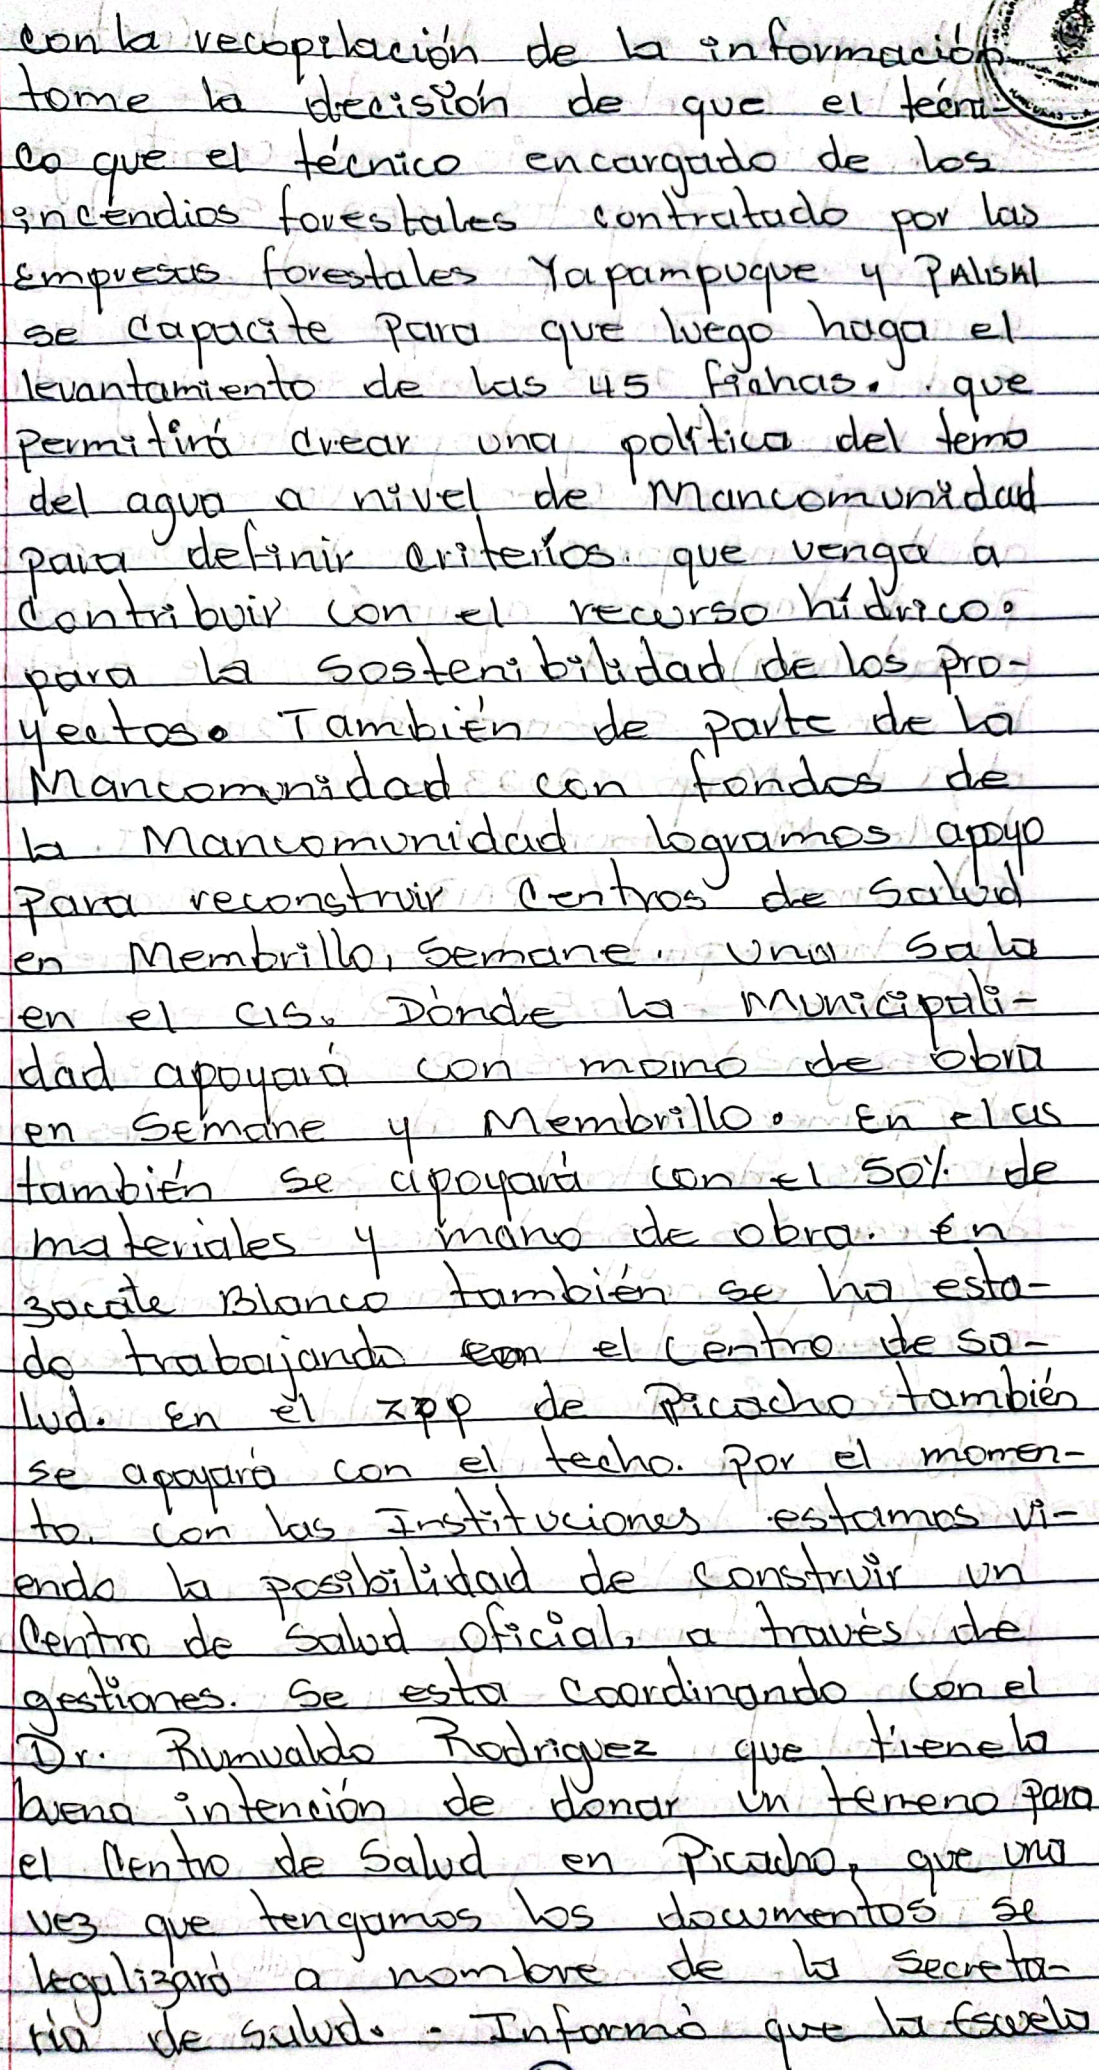 con la recopilación de la información
tome la decisión de que el técni-
co que el técnico encargado de los
incéndios forestales contratado por las
empresas forestales Yapampuque y PALISAl
se capacite para que luego haga el
levantamiento de las 45 fichas. que
permitirá crear una política del tema
del agua a nivel de Mancomunidad
para definir criterios que venga a
Contribuir con el recurso hídrico.
para la sostenibilidad de los pro-
yectos. También de parte de la
Mancomunidad con fondos de
la Mancomunidad logramos apoyo
para reconstruir Centros de Salud
en Membrillo, Semane. una Sala
en el CIS. Dónde la Municipali-
dad apoyará con mano de obra
en Semane y Membrillo. En el CIS
también se apoyará con el 50% de
materiales y mano de obra. En
zacate Blanco también se ha esta-
do trabajando con el centro de sa-
lud. En el ZPP de Picacho también
se apoyará con el techo. Por el momen-
to. con las Instituciones estamos vi-
endo la posibilidad de construir un
Centro de Salud Oficial, a través de
gestiones. Se esta coordinando con el
Dr. Rumualdo Rodriguez que tiene la
buena intención de donar un terreno para
el Centro de Salud en Picacho, que una
vez que tengamos los documentos se
legalizará a nombre de la Secreta-
ría de Salud. - Informó que la Escuela